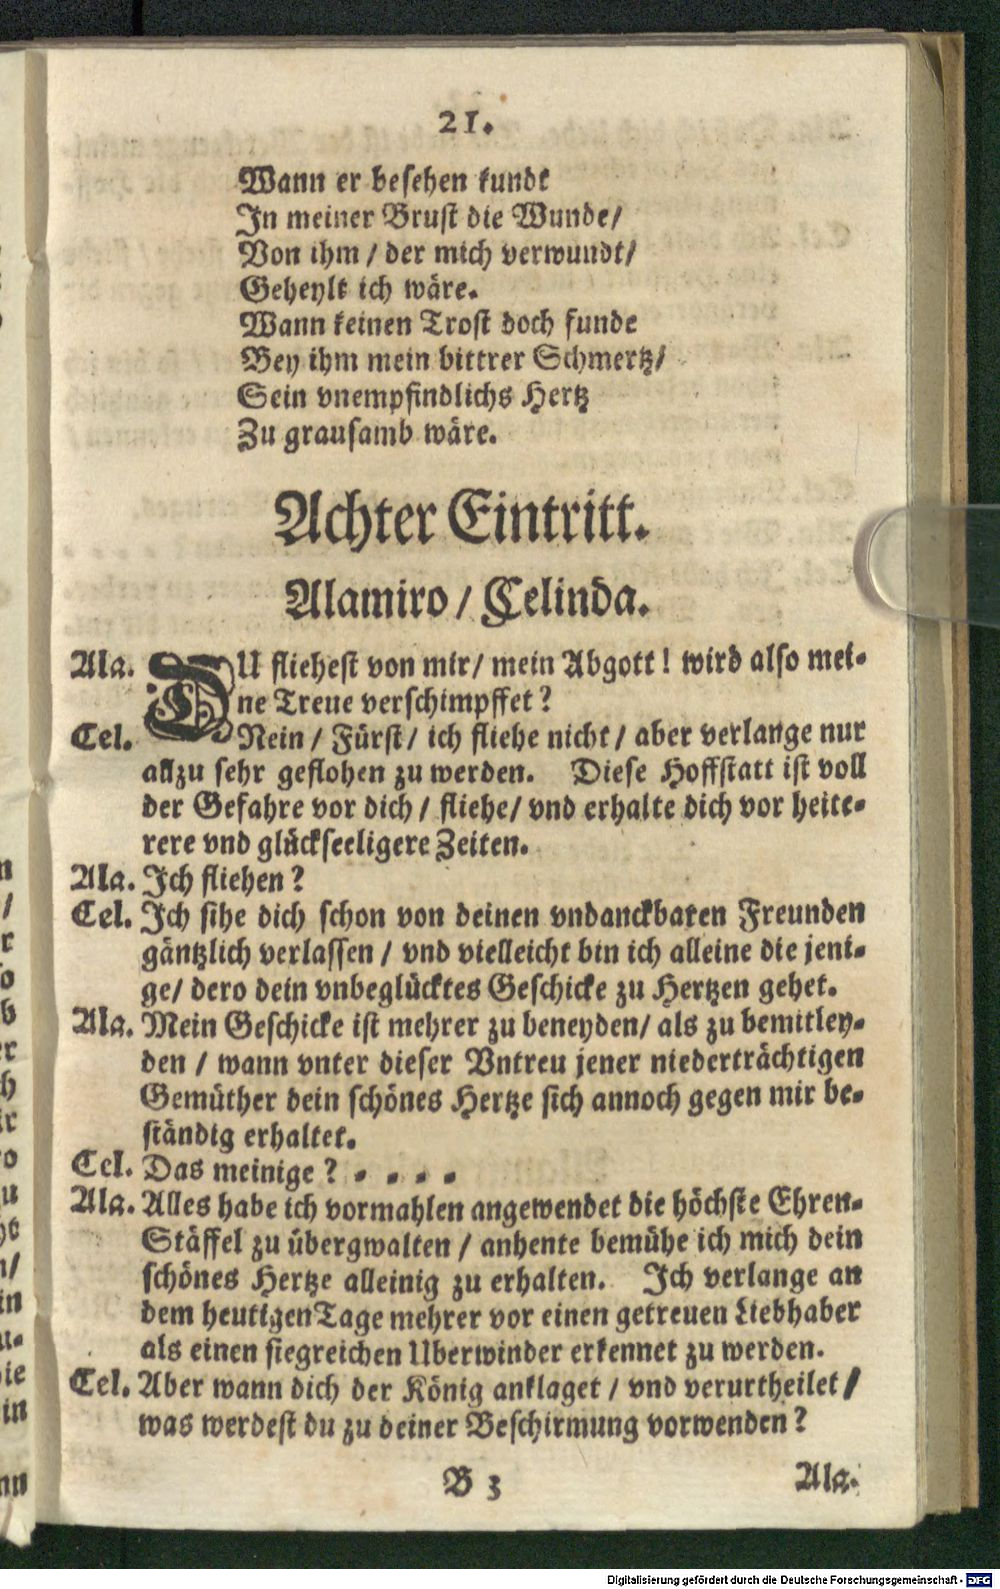 21.
Wann er besehen kundt
In meiner Brust die Wunde/
Von ihm / der mich verwundt/
Geheylt ich wäre.
Wann keinen Trost doch funde
Bey ihm mein bittrer Schmertz/
Sein vnempfindlichs Hertz
Zu grausamb wäre.
Achter Eintritt.
Alamiro / Celinda.
Ala. DU fliehest von mir/ mein Abgott! wird also mei-
ne Treue verschimpffet?
Cel. Nein / Fürst/ ich fliehe nicht/ aber verlange nur
allzu sehr geflohen zu werden. Diese Hoffstatt ist voll
der Gefahre vor dich / fliehe/ vnd erhalte dich vor heite-
rere vnd glückseeligere Zeiten.
Ala. Ich fliehen?
Cel. Ich sihe dich schon von deinen vndanckbaren Freunden
gäntzlich verlassen / vnd vielleicht bin ich alleine die jeni-
ge/ dero dein vnbeglücktes Geschicke zu Hertzen gehet.
Ala. Mein Geschicke ist mehrer zu beneyden/ als zu bemitley-
den / wann vnter dieser Vntreu jener niederträchtigen
Gemüther dein schönes Hertze sich annoch gegen mir be-
ständig erhaltet.
Cel. Das meinige? - - - -
Ala. Alles habe ich vormahlen angewendet die höchste Ehren-
Stäffel zu übergwalten / anhente bemühe ich mich dein
schönes Hertze alleinig zu erhalten. Ich verlange an
dem heutigen Tage mehrer vor einen getreuen Liebhaber
als einen siegreichen Uberwinder erkennet zu werden.
Cel. Aber wann dich der König anklaget / vnd verurtheilet/
was werdest du zu deiner Beschirmung vorwenden?
B 3 Ala.
n
/
r
so
b
er
h
ir
o
zu
he
n/
in
u-
die
in
nn
Digitalisierung gefördert durch die Deutsche Forschungsgemeinschaft - DFG